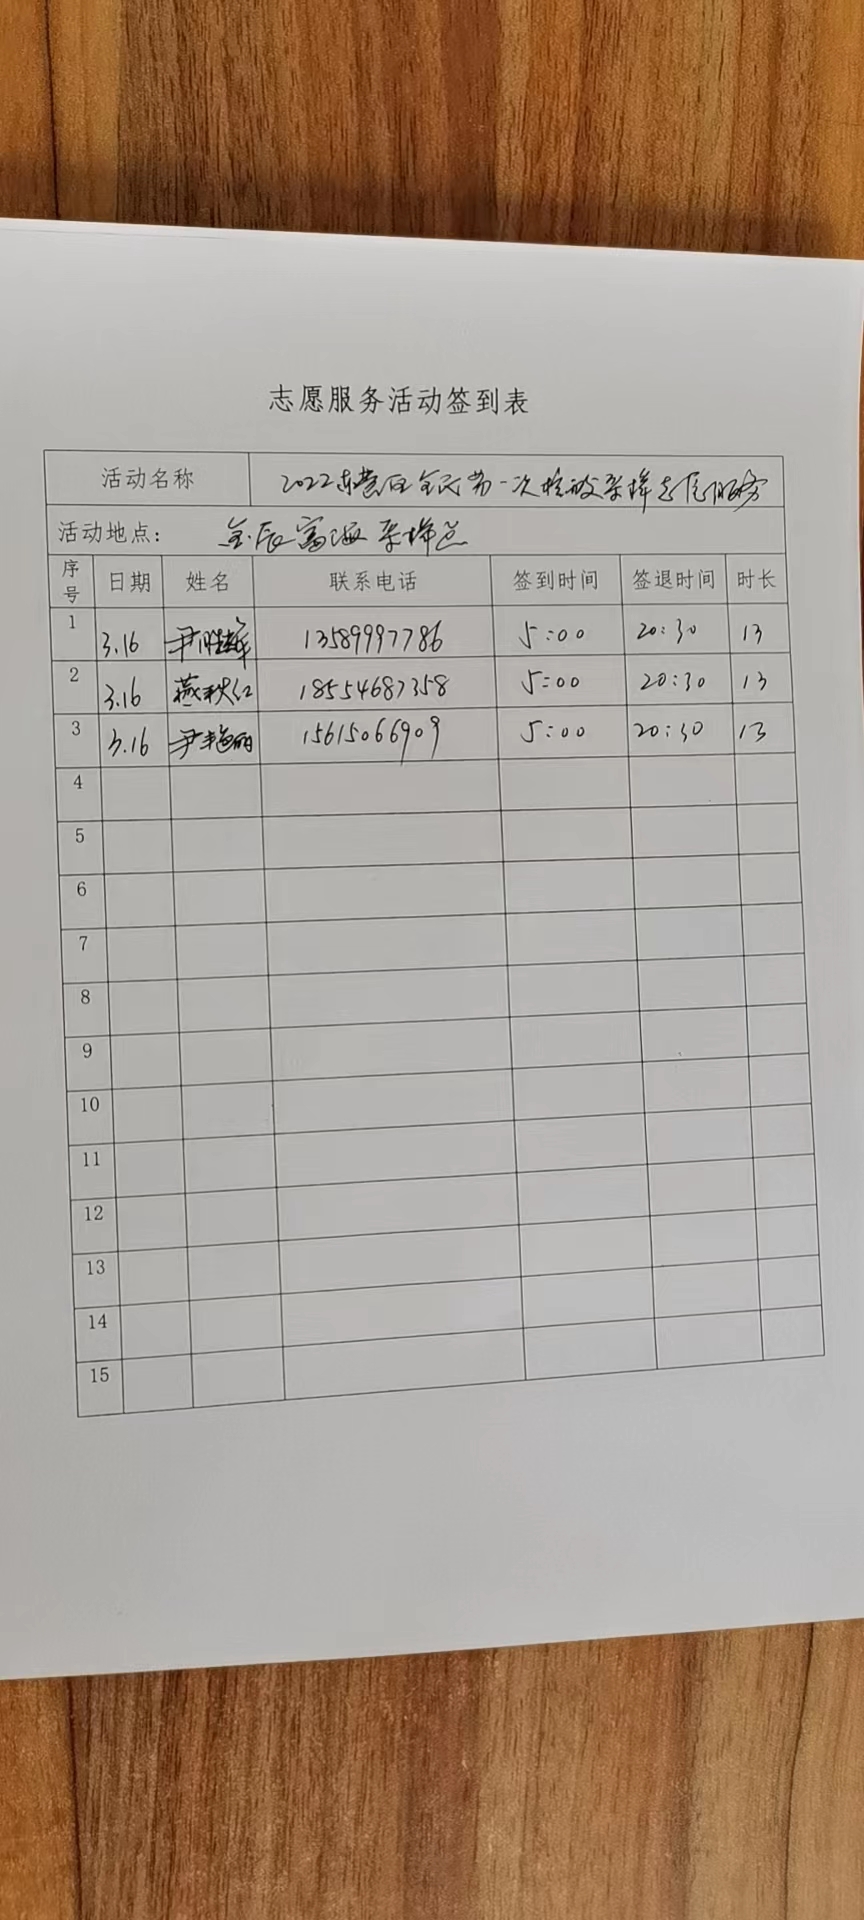 志愿服务活动签到表
活动名称 2022东营区全民第一次核酸采样志愿服务
活动地点： 金辰富海采样点
序号 日期 姓名 联系电话 签到时间 签退时间 时长
1 3.16 尹胜 13589997786 5:00 20:30 13
2 3.16 燕秋红 18554687358 5:00 20:30 13
3 3.16 尹艳丽 15615066909 5:00 20:30 13
4
5
6
7
8
9
10
11
12
13
14
15